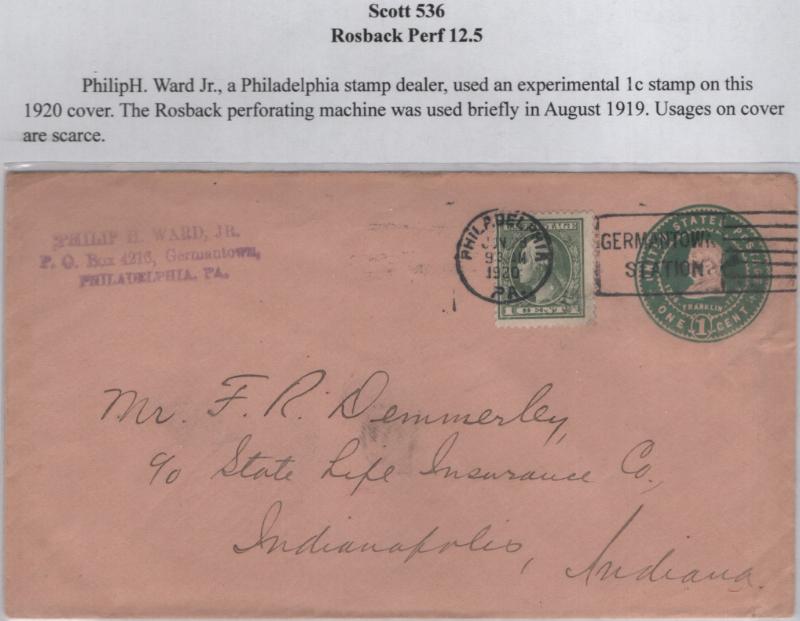 Scott 536
Rosback Perf 12.5
PhilipH. Ward Jr., a Philadelphia stamp dealer, used an experimental 1c stamp on this
1920 cover. The Rosback perforating machine was used briefly in August 1919. Usages on cover
are scarce.
PHILIP H. WARD, JR.
P. O. Box 4216, Germantown,
PHILADELPHIA, PA.
PHILADELPHIA
1920
PA
GERMANTOWN
STATION
1 CENT 1
UNITED STATES POSTAGE
FRANKLIN
ONE 1 CENT
Mr. F. R. Demmerley,
c/o State Life Insurance Co.,
Indianapolis,
Indiana.